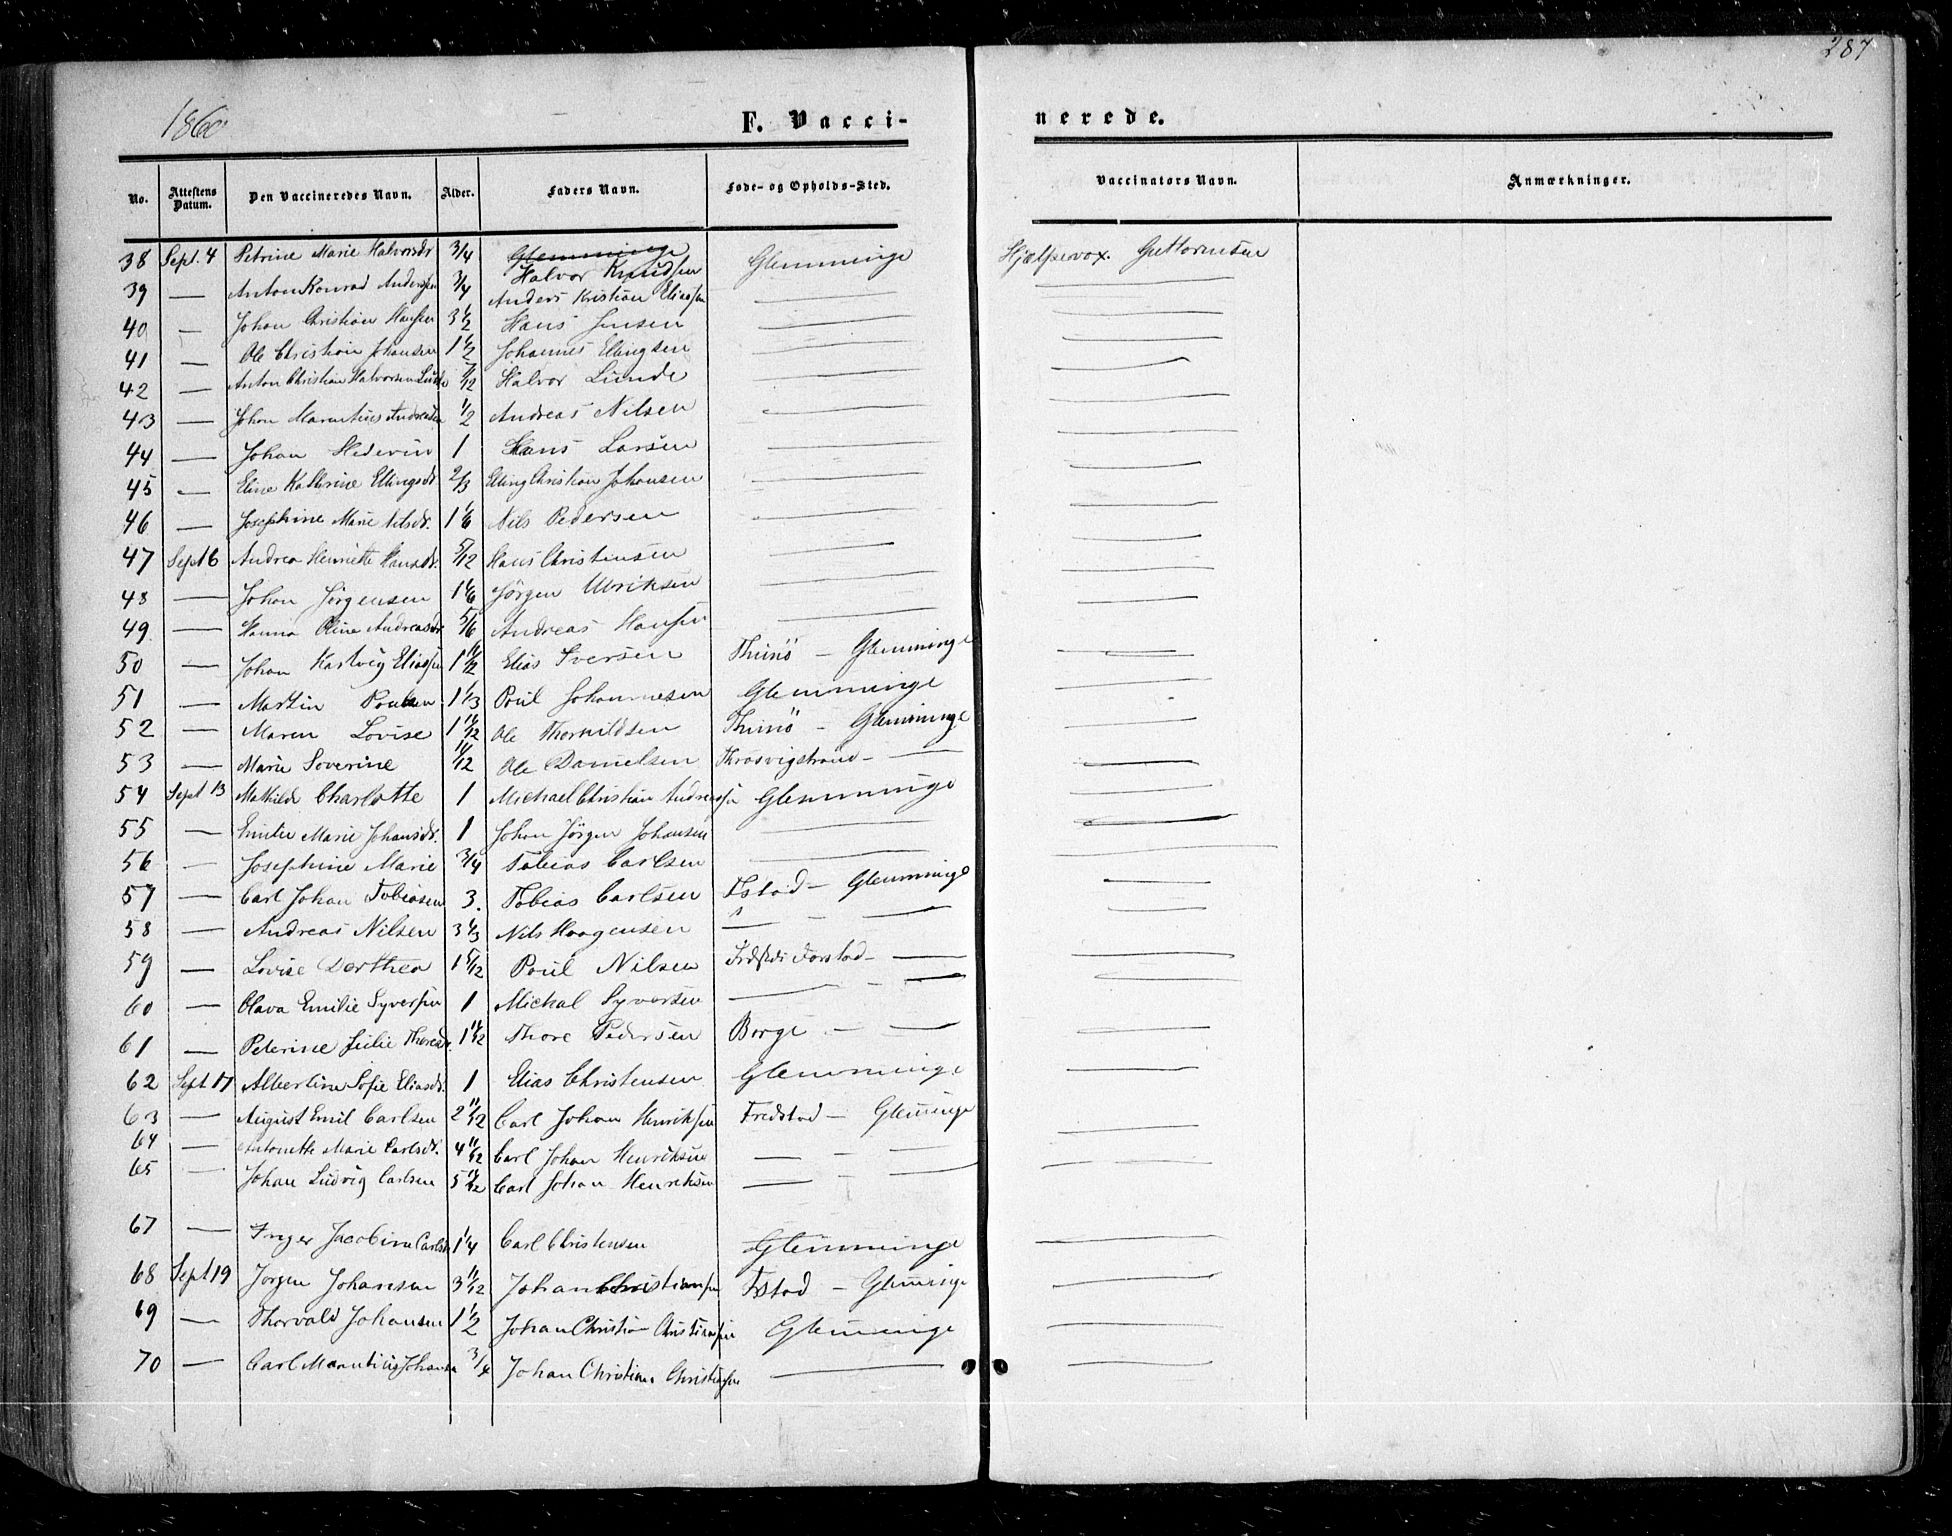 287
1860
F. Vacci- nerede.
No. Attestens Datum. Den Vaccineredes Navn. Alder. Faders Navn. Føde- og Opholds-Sted. Vaccinators Navn. Anmærkninger.
38 Sept. 4 Petrine Marie Halvorsdr 3/4 Glemminge Halvor Knudsen Glemminge Hjælpevax. Guttormsen
39 — Anton Konrad Andersen 3/4 Anders Kristian Eliassen — —
40 — Johan Christian Hansen 3 1/2 Hans Jensen — —
41 — Ole Christian Johansen 1 1/2 Johannes Ellingsen — —
42 — Anton Christian Halvorsen Lunde 7/12 Halvor Lunde — —
43 — Johan Marentius Andreasen 1/2 Andreas Nilsen — —
44 — Johan Hedevin 1 Hans Larsen — —
45 — Eline Kathrine Ellingsdr 2/3 Elling Christian Johansen — —
46 — Josephine Marie Nilsdr. 1 1/6 Nils Pedersen — —
47 Sept 6 Andrea Henriette Hansdr. 5/12 Hans Christensen — —
48 — Johan Jørgensen 1 1/6 Jørgen Ulriksen — —
49 — Hanna Oline Andreasdr 5/6 Andreas Hansen — —
50 — Johan Hartvig Eliassen 1 1/12 Elias Iversen Thunö — Glemminge —
51 — Martin Poulsen 1 1/3 Poul Johannesen Glemminge —
52 — Maren Lovise 1 1/12 Ole Thorkildsen Thunö — Glemminge —
53 — Marie Severine 11/12 Ole Danielsen Kraavigstrand — — —
54 Sept 13 Mathilde Charlotte 1 Michael Christian Andreassen Glemminge —
55 — Emilie Marie Johansdr. 1 Johan Jørgen Johansen — —
56 — Josephine Marie 3/4 Tobias Carlsen — —
57 — Carl Johan Tobiasen 3. Tobias Carlsen Fstad — Glemminge —
58 — Andreas Nilsen 3 1/3 Nils Haagensen — — — —
59 — Lovise Dorthea 1 5/12 Poul Nilsen Fredstds Forstad — — —
60 — Olava Emilie Syversen 1 Mickal Syversen — — — —
61 — Peterine Julie Thoresdr. 1 11/12 Thore Pedersen Borge — — —
62 Sept 17 Albertine Sofie Eliasdr. 1 Elias Christensen Glemminge —
63 — August Emil Carlsen 2 11/12 Carl Johan Henriksen Fredstad — Glemminge —
64 — Antonette Marie Carlsdr. 4 11/12 Carl Johan Henriksen — — — —
65 — Johan Ludvig Carlsen 5 11/12 Carl Johan Henriksen — — —
67 — Inger Jacobine Carlsdr 1 1/4 Carl Christensen Glemminge —
68 Sept 19 Jørgen Johansen 3 11/12 Johan Christiansen Fstad — Glemminge —
69 — Thorvald Johansen 1 1/2 Johan Christian Christiansen Glemminge —
70 — Carl Marentius Johansen 3/4 Johan Christian Christiansen — —